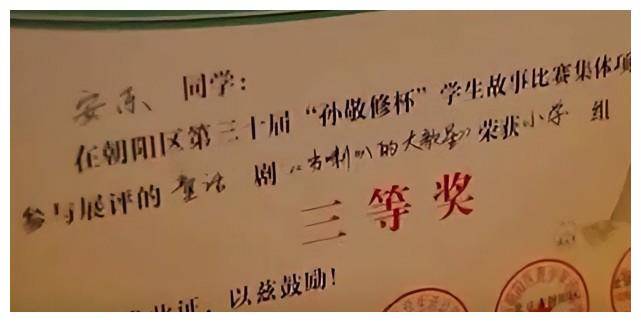 安东 同学:
在朝阳区第三十届“孙敬修杯”学生故事比赛集体项
参与展评的 童话 剧 “大喇叭的大歌星” 荣获 小学 组
三等奖
此证,以兹鼓励!